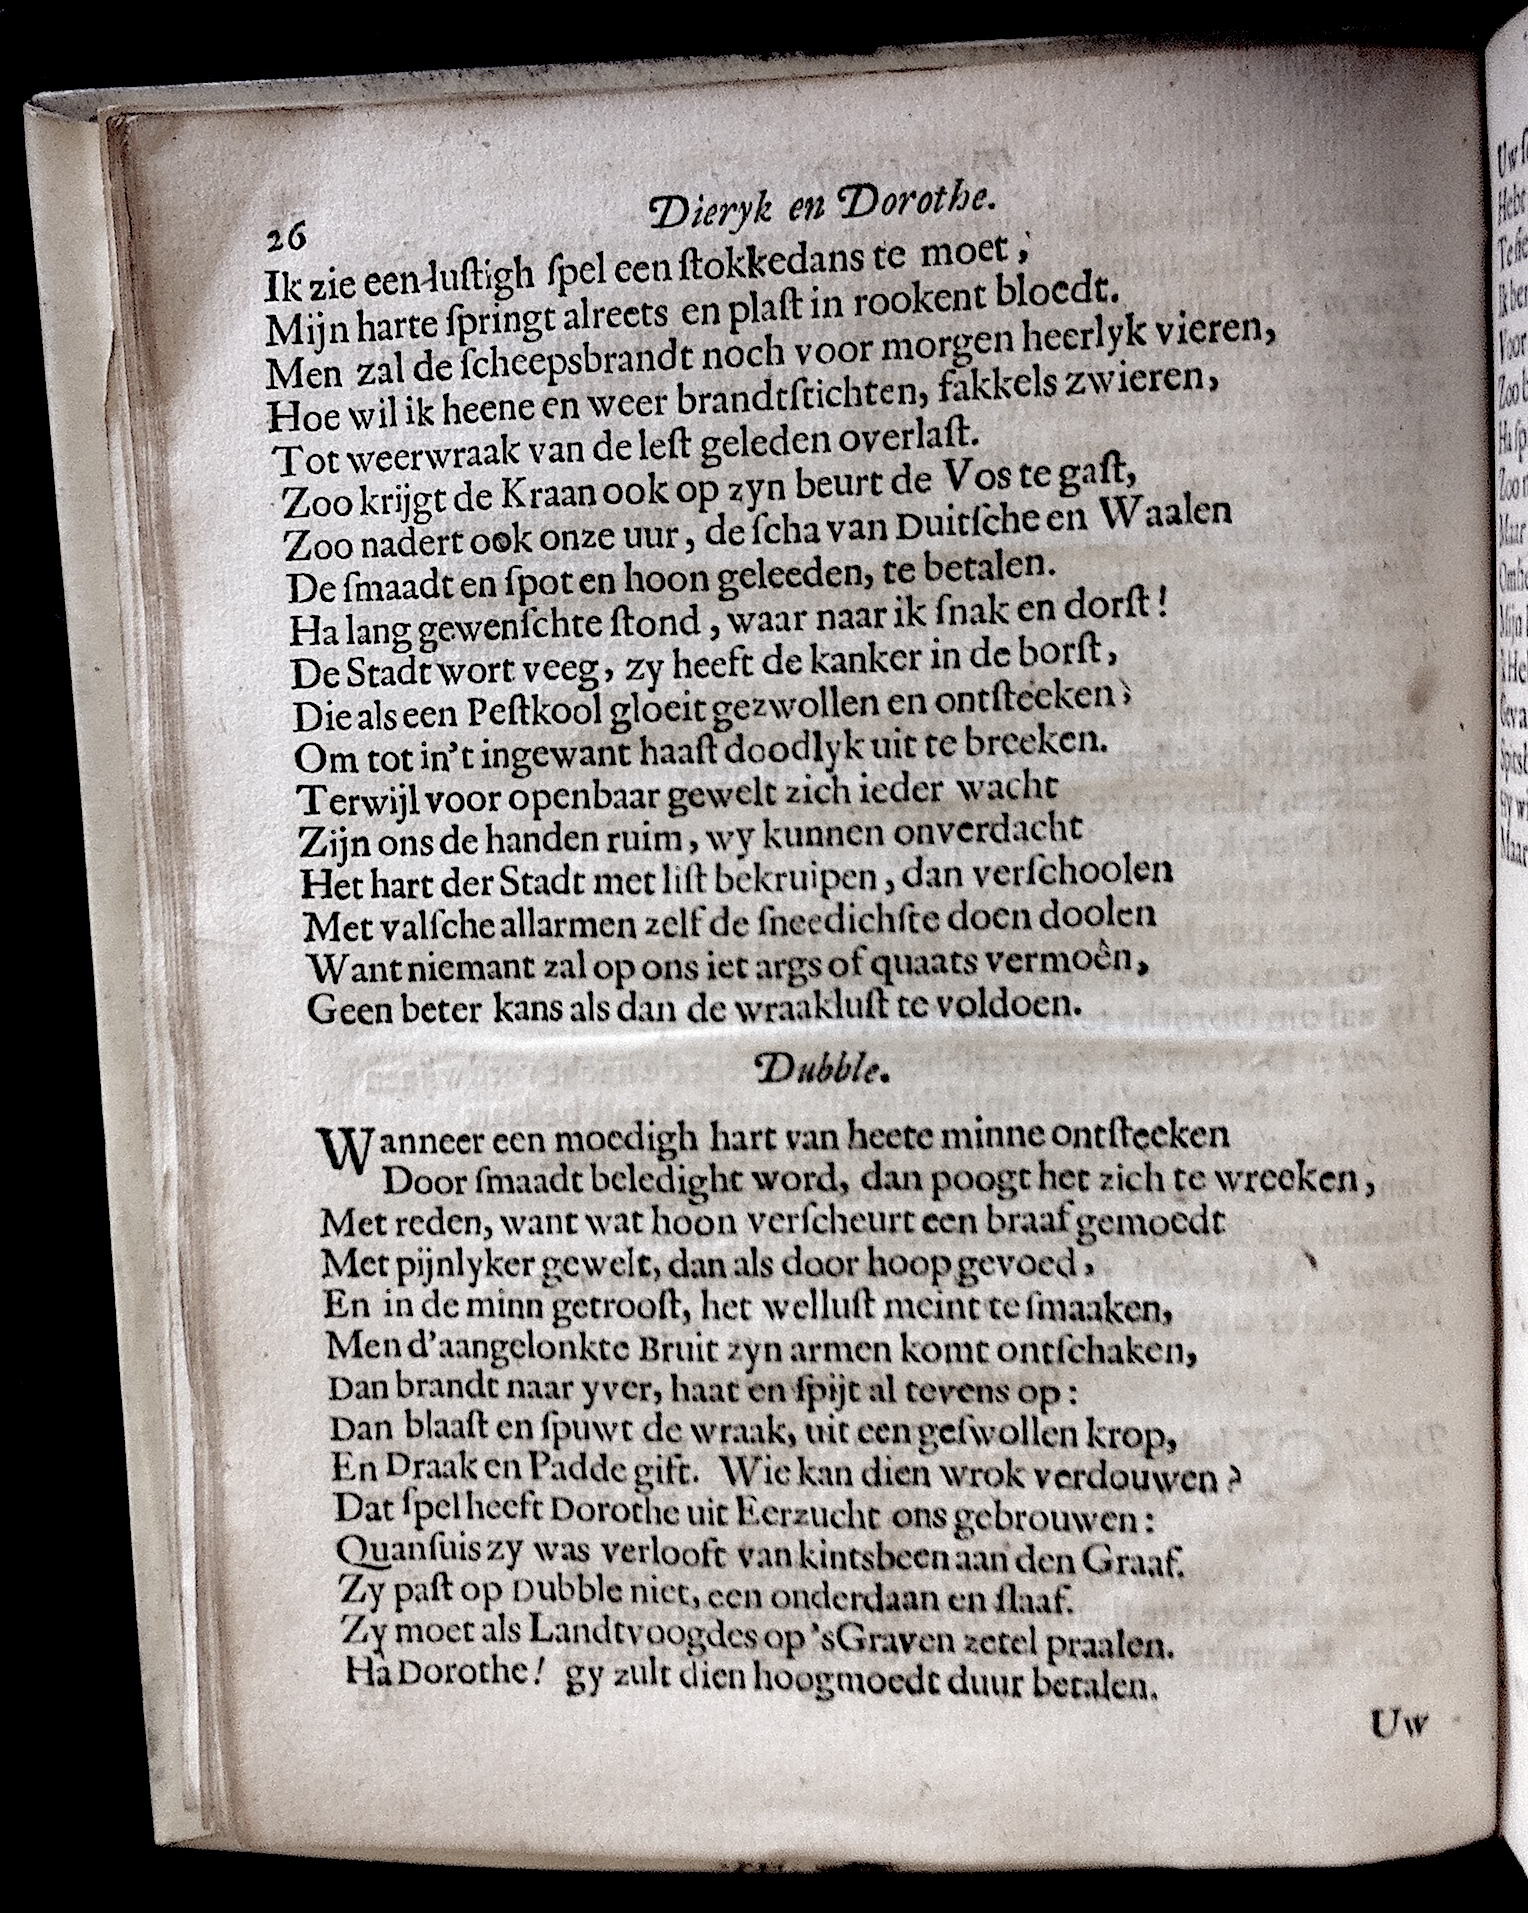 26
Dieryk en Dorothe.
Ik zie een luſtigh ſpel een ſtokkedans te moet,
Mijn harte ſpringt alreets en plaſt in rookent bloedt.
Men zal de ſcheepsbrandt noch voor morgen heerlyk vieren,
Hoe wil ik heene en weer brandtſtichten, fakkels zwieren,
Tot weerwraak van de leſt geleden overlaſt.
Zoo krijgt de Kraan ook op zyn beurt de Vos te gaſt,
Zoo nadert ook onze uur, de ſcha van Duitſche en Waalen
De ſmaadt en ſpot en hoon geleeden, te betalen.
Ha lang gewenſchte ſtond, waar naar ik ſnak en dorſt!
De Stadt wort veeg, zy heeft de kanker in de borſt,
Die als een Peſtkool gloeit gezwollen en ontſteeken;
Om tot in't ingewant haaſt doodlyk uit te breeken.
Terwijl voor openbaar gewelt zich ieder wacht
Zijn ons de handen ruim, wy kunnen onverdacht
Het hart der Stadt met liſt bekruipen, dan verſchoolen
Met valſche allarmen zelf de ſneedichſte doen doolen
Want niemant zal op ons iet args of quaats vermoên,
Geen beter kans als dan de wraakluſt te voldoen.
Dubble.
Wanneer een moedigh hart van heete minne ontſteeken
Door ſmaadt beledight word, dan poogt het zich te wreeken,
Met reden, want wat hoon verſcheurt een braaf gemoedt
Met pijnlyker gewelt, dan als door hoop gevoed,
En in de minn getrooſt, het welluſt meint te ſmaaken,
Men d'aangelonkte Bruit zyn armen komt ontſchaken,
Dan brandt naar yver, haat en ſpijt al tevens op:
Dan blaaſt en ſpuwt de wraak, uit een geſwollen krop,
En Draak en Padde gift. Wie kan dien wrok verdouwen?
Dat ſpel heeft Dorothe uit Eerzucht ons gebrouwen:
Quanſuis zy was verlooft van kintsbeen aan den Graaf.
Zy paſt op Dubble niet, een onderdaan en ſlaaf.
Zy moet als Landtvoogdes op 'sGraven zetel praalen.
Ha Dorothe! gy zult dien hoogmoedt duur betalen.
Uw